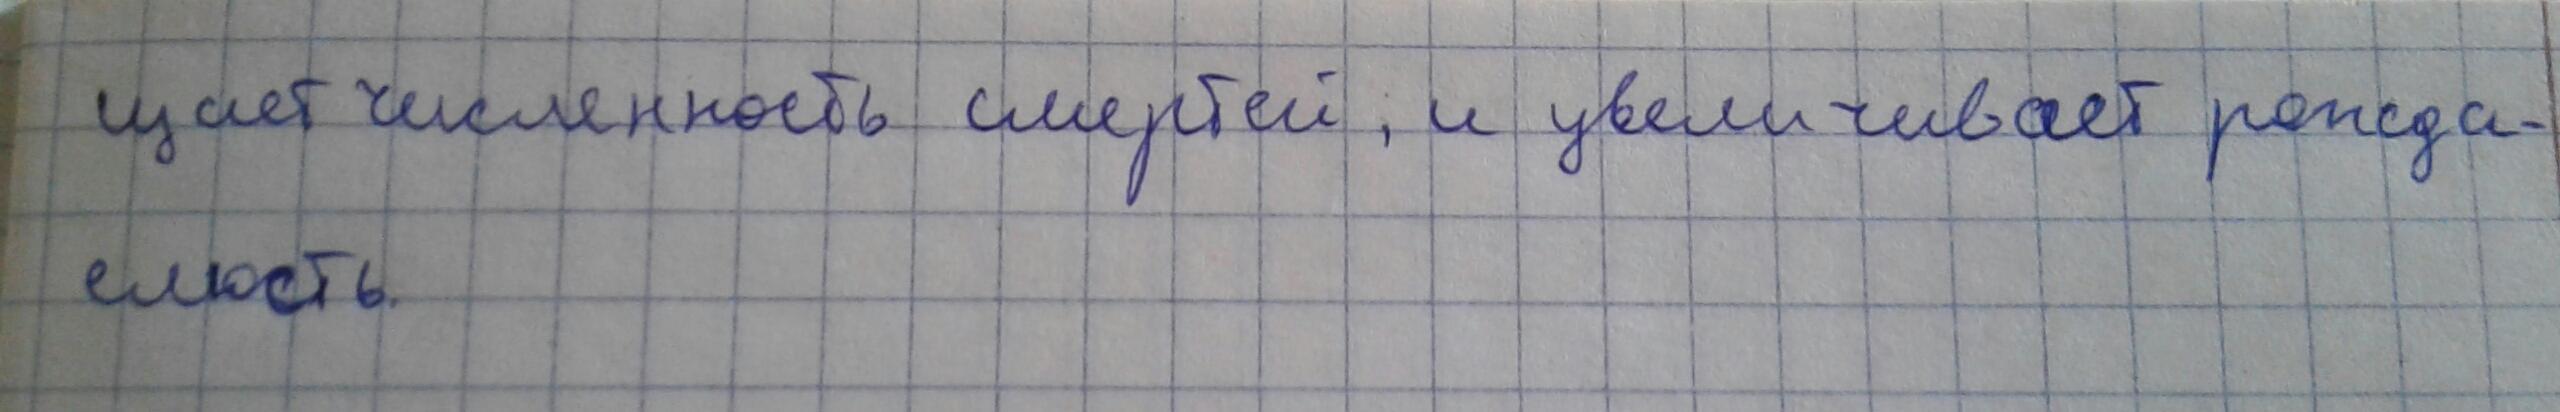 щает численность смертей, и увеличивает рожда-
емость.